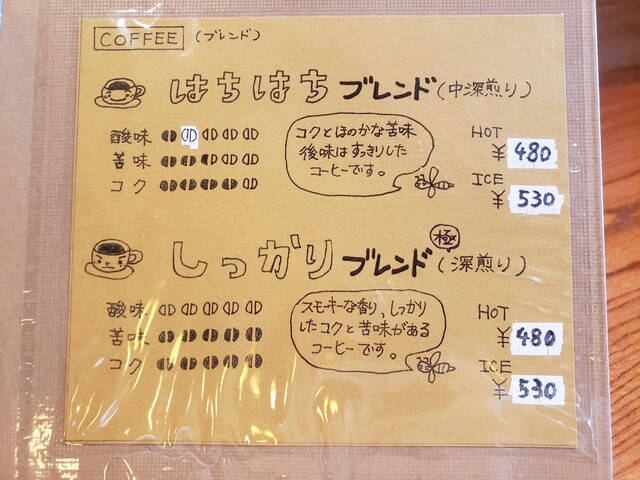 COFFEE (ブレンド)
はちはち ブレンド (中深煎り)
酸味
苦味
コク
コクとほのかな苦味
後味はすっきりした
コーヒーです。
HOT
¥ 480
ICE
¥ 530
しっかり ブレンド 極 (深煎り)
酸味
苦味
コク
スモーキーな香り、しっかり
したコクと苦味がある
コーヒーです。
HOT
¥ 480
ICE
¥ 530